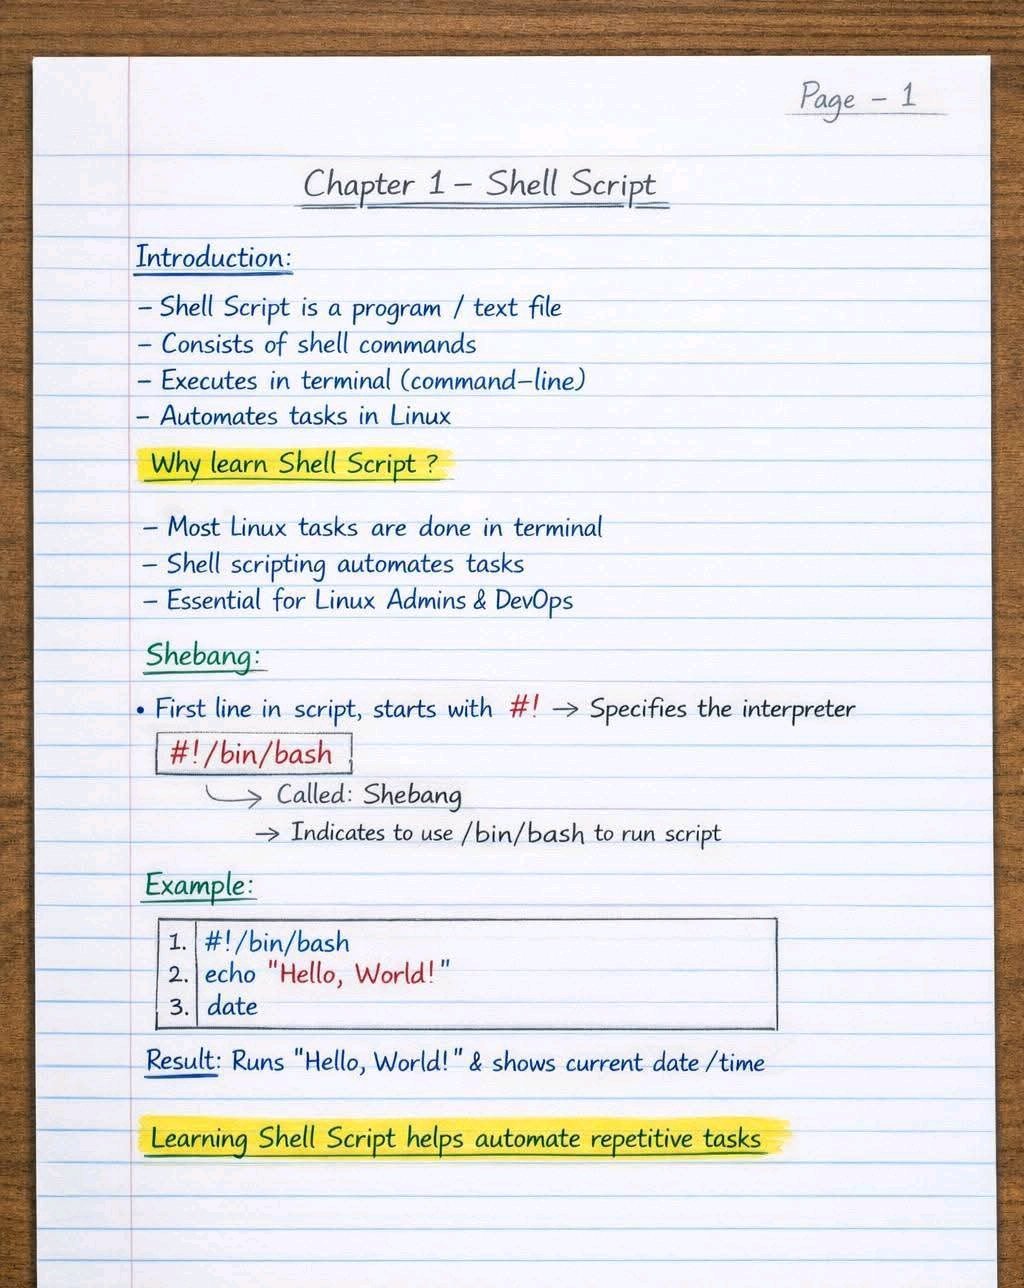 Page - 1
Chapter 1 – Shell Script
Introduction:
– Shell Script is a program / text file
– Consists of shell commands
– Executes in terminal (command–line)
– Automates tasks in Linux
Why learn Shell Script ?
– Most Linux tasks are done in terminal
– Shell scripting automates tasks
– Essential for Linux Admins & DevOps
Shebang:
• First line in script, starts with #! → Specifies the interpreter
#!/bin/bash
→ Called: Shebang
→ Indicates to use /bin/bash to run script
Example:
1. #!/bin/bash
2. echo "Hello, World!"
3. date
Result: Runs "Hello, World!" & shows current date /time
Learning Shell Script helps automate repetitive tasks